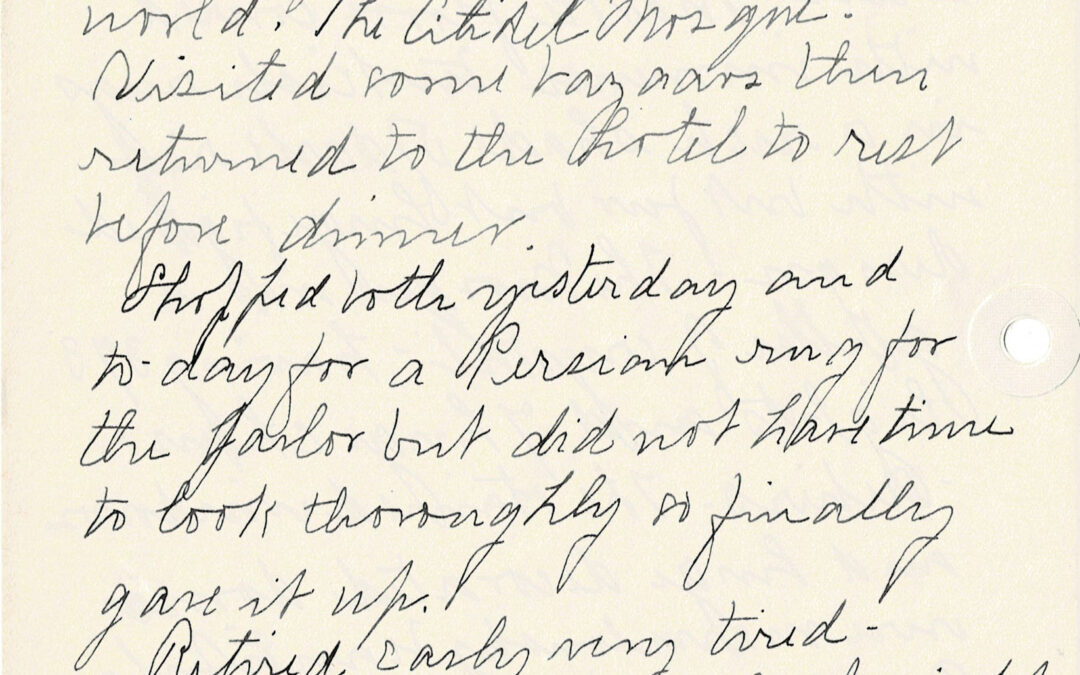 world. The Citidel Mosque.
Visited some bazaars then
returned to the hotel to rest
before dinner.
Shopped both yesterday and
to-day for a Persian rug for
the parlor but did not have time
to look thoroughly so finally
gave it up.
Retired early very tired-